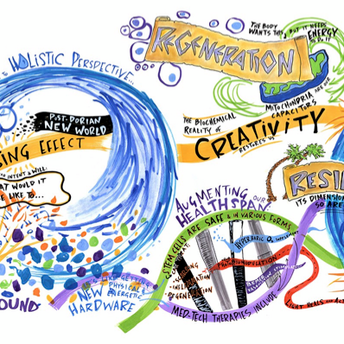 HOLISTIC PERSPECTIVE...
POST-DORIAN
NEW WORLD
SING EFFECT
INTENT & WILL
WHAT WOULD IT
LIKE TO...
OUND
NEW
PHYSICAL
ENERGETIC
HARDWARE
REGENERATION
THE BODY
WANTS THIS, BUT IT NEEDS
ENERGY
TO DO IT
MITOCHONDRIA ARE
CAPACITORS
THE BIOCHEMICAL
REALITY OF
CREATIVITY
RESI
ITS DIMENSION
SO ARE
AUGMENTING OUR
HEALTHSPAN
STEM CELLS ARE SAFE & IN VARIOUS FORMS
HYPERBARIC O2
REGENERATION
MED-TECH THERAPIES INCLUDE
LIGHT HEALS